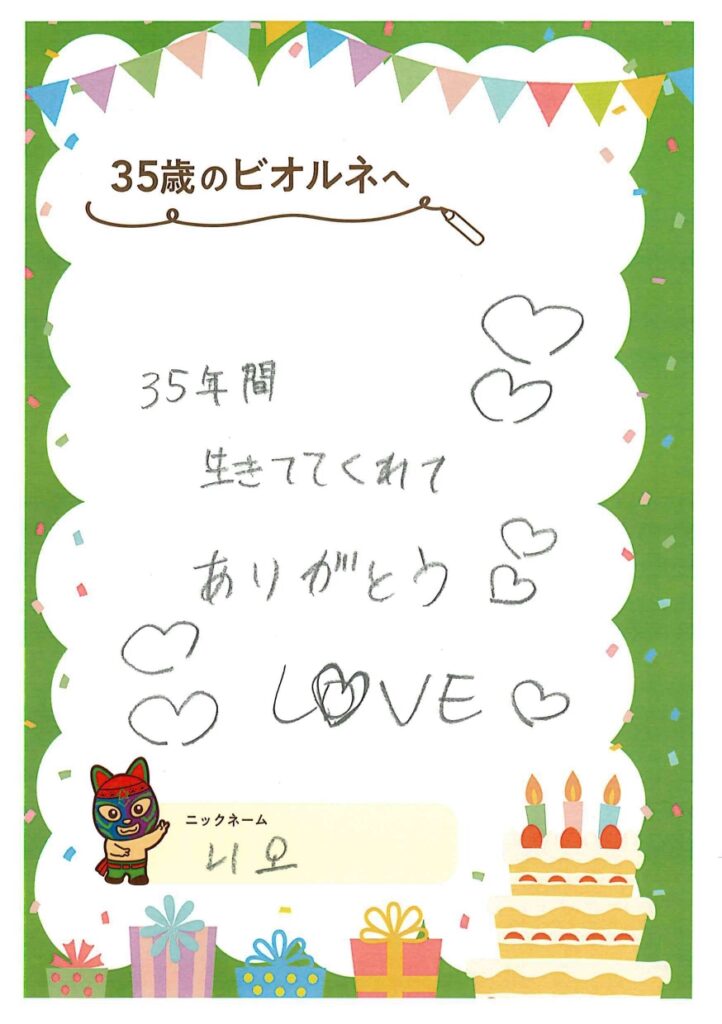 35歳のビオルネへ
35年間
生きててくれて
ありがとう
LOVE
ニックネーム
니오